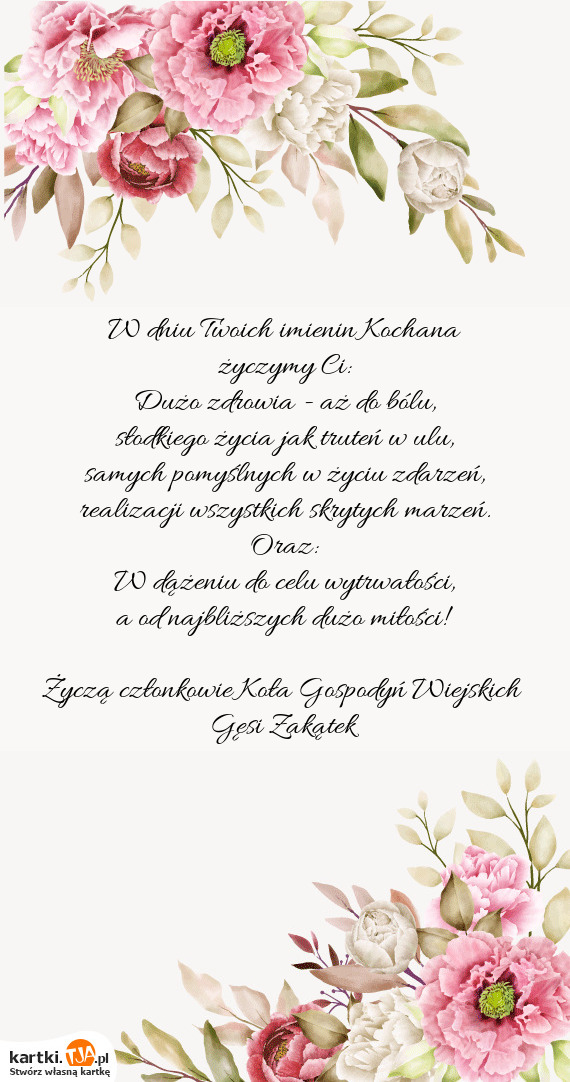 W dniu Twoich imienin Kochana
życzymy Ci:
Dużo zdrowia - aż do bólu,
słodkiego życia jak truteń w ulu,
samych pomyślnych w życiu zdarzeń,
realizacji wszystkich skrytych marzeń.
Oraz:
W dążeniu do celu wytrwałości,
a od najbliższych dużo miłości!
Życzą członkowie Koła Gospodyń Wiejskich
Gęsi Zakątek
kartki.TJA.pl
Stwórz własną kartkę